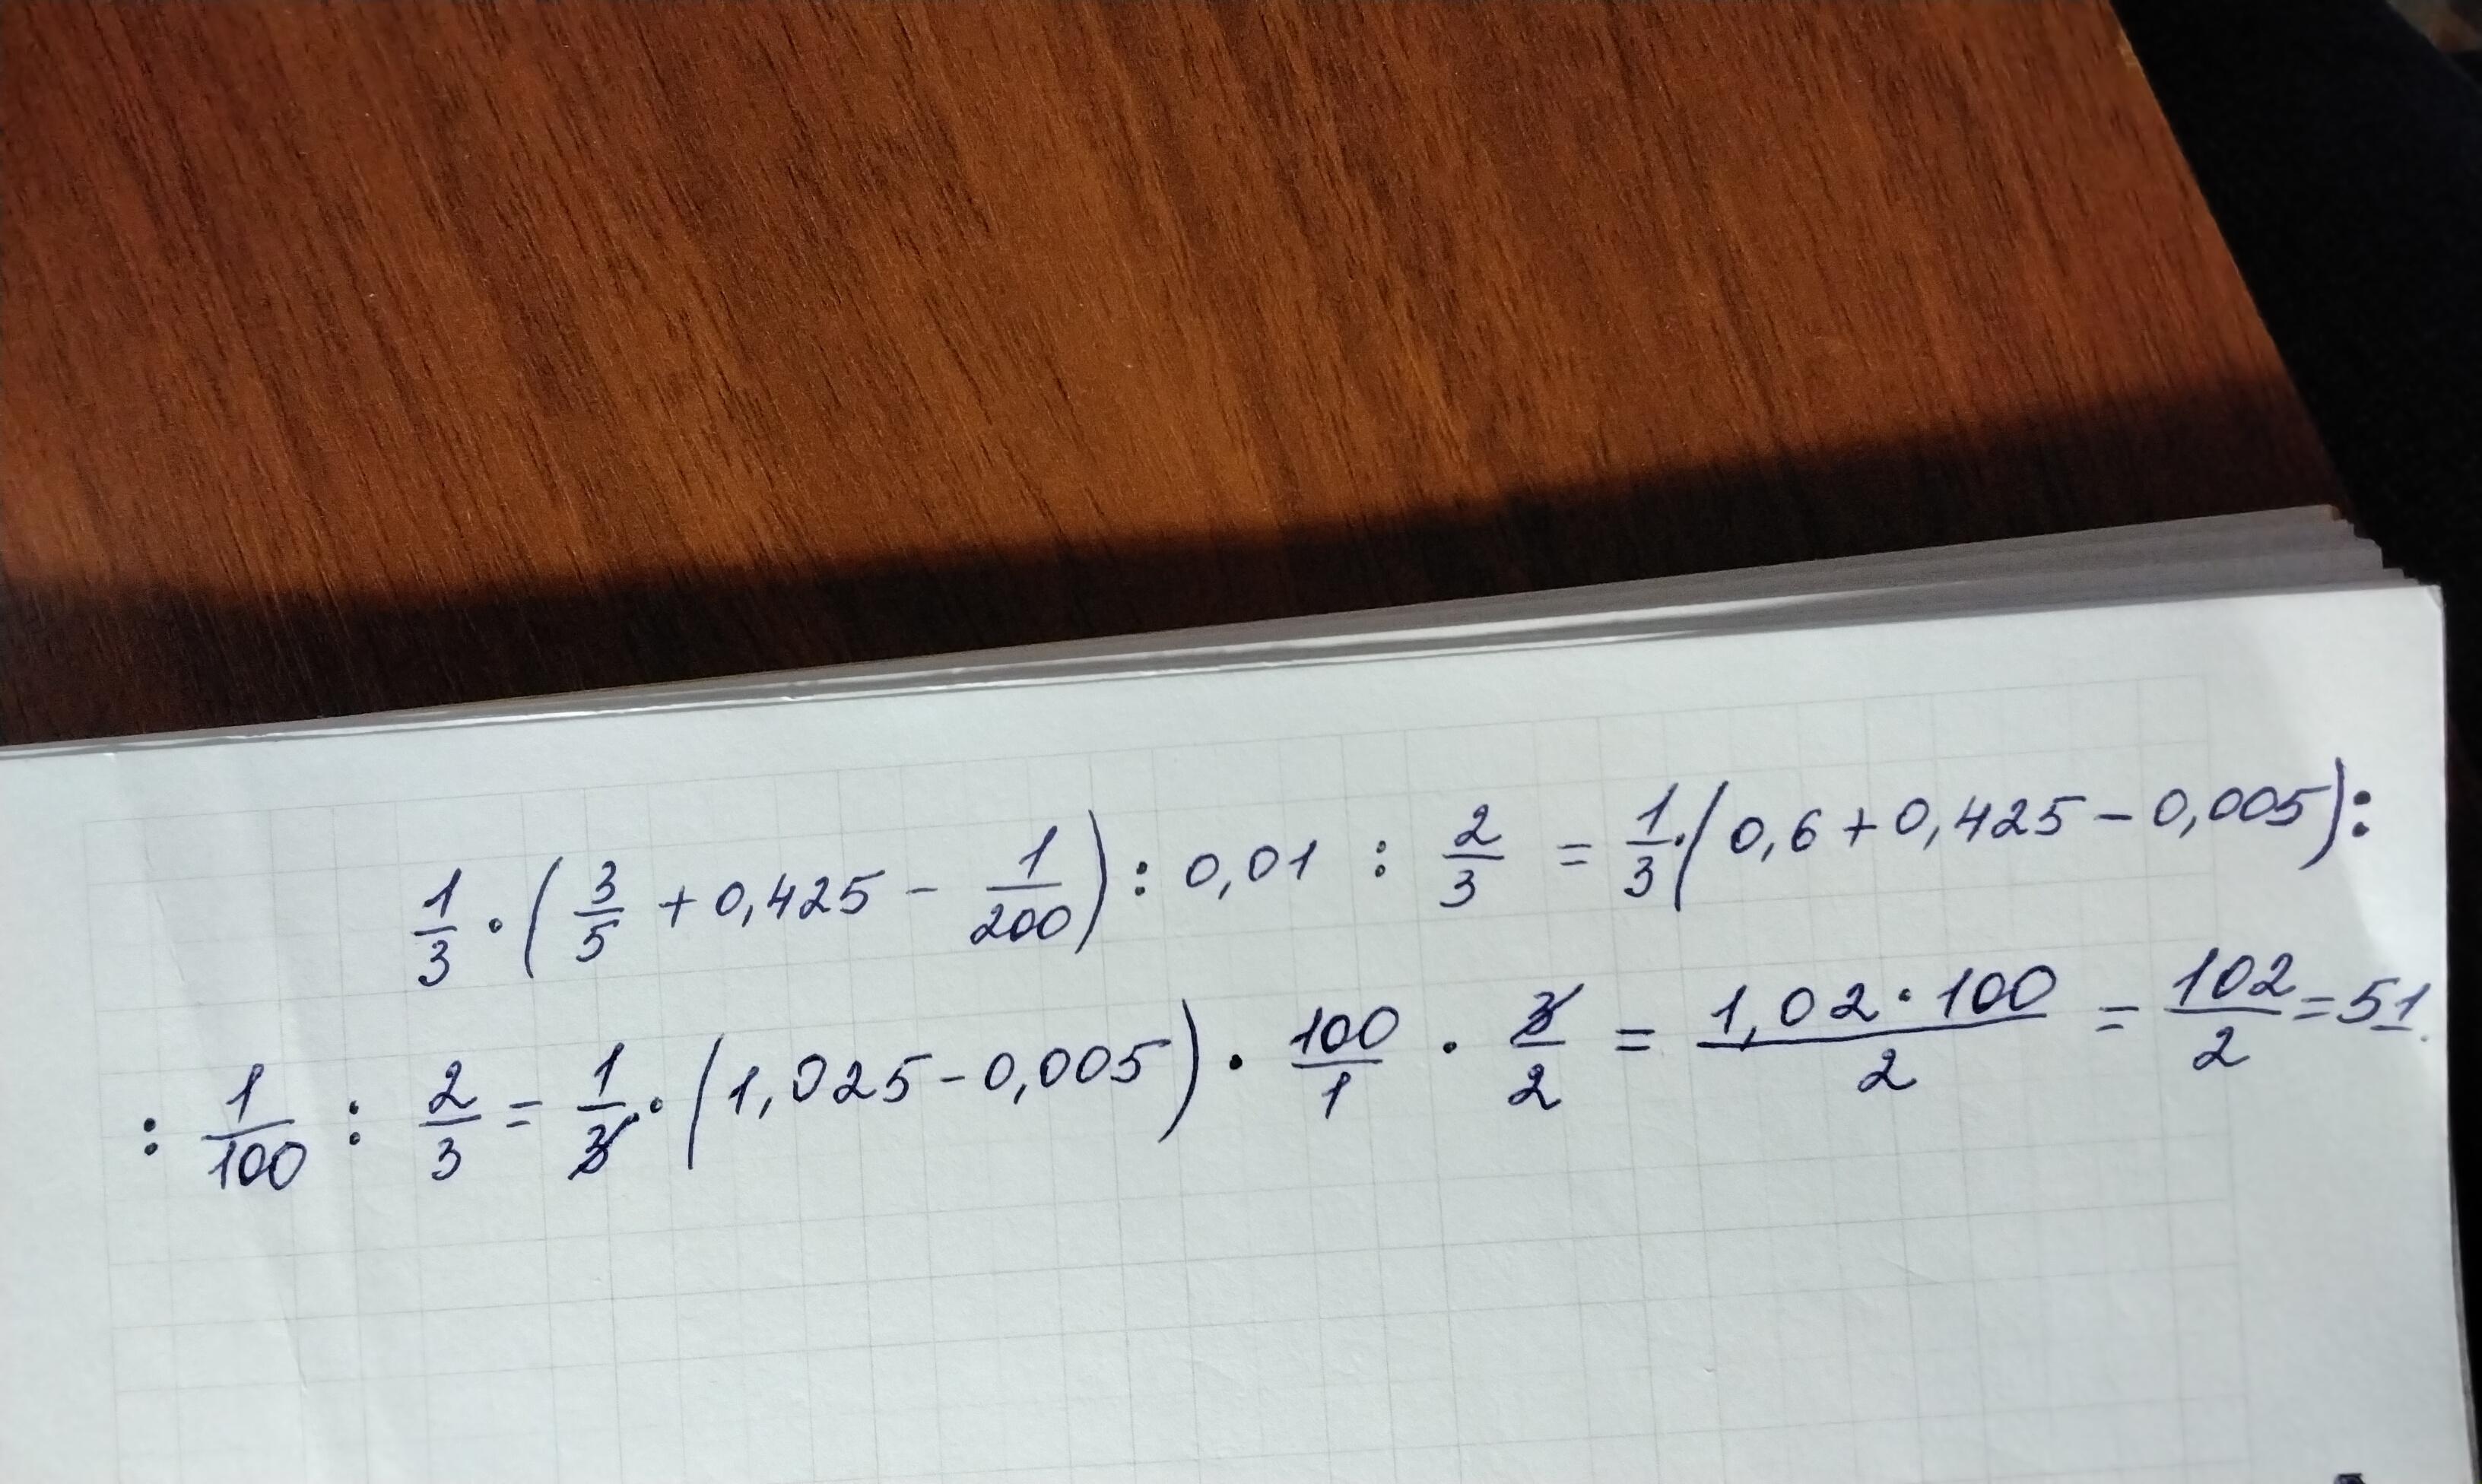 1/3 · (3/5 + 0,425 - 1/200) : 0,01 : 2/3 = 1/3 · (0,6 + 0,425 - 0,005) :
: 1/100 : 2/3 = 1/3 · (1,025 - 0,005) · 100/1 · 3/2 = 1,02 · 100/2 = 102/2 = 51